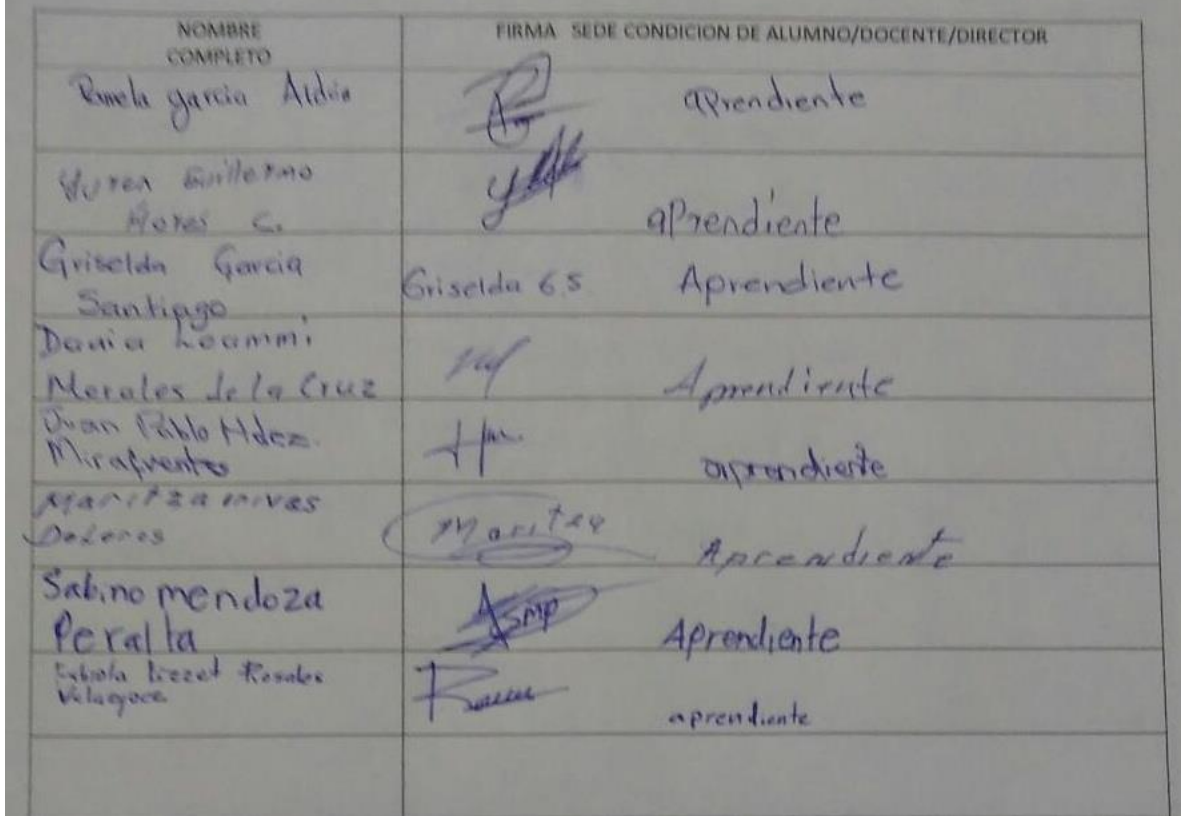 NOMBRE COMPLETO
FIRMA SEDE CONDICION DE ALUMNO/DOCENTE/DIRECTOR
garcia
aprendiente
Guillermo
C.
aprendiente
Griselda Garcia
Santiago
Griselda G S
Aprendiente
Dania Loammi
Morales de la Cruz
Aprendiente
Juan Pablo Hdez.
Mirafuentes
aprendiente
Maritza
Aprendiente
Sabino mendoza
Peralta
SMP
Aprendiente
Rosales
aprendiente